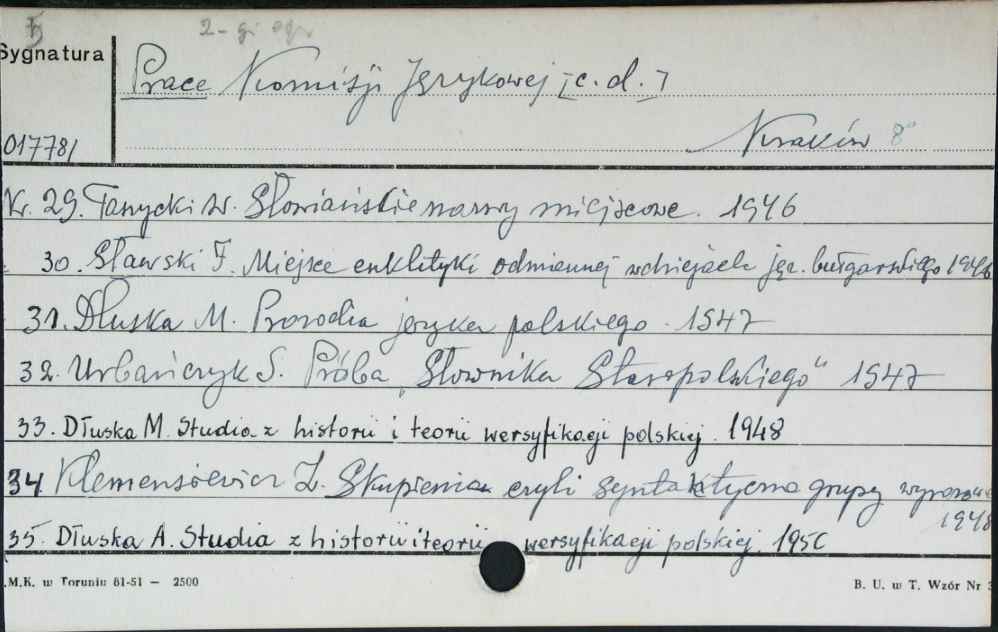 2-gi egz
Sygnatura
Prace Komisji Językowej [c.d.]
01778/
Kraków 8°
Nr. 29. Taszycki W. Słowiańskie nazwy miejscowe. 1946
30. Sławski F. Miejsce enklityki odmiennej w dziejach jęz. bułgarskiego 1946
31. Dłuska M. Prozodia języka polskiego. 1947
32. Urbańczyk S. Próba „Słownika Staropolskiego" 1947
33. Dłuska M. Studia z historii i teorii wersyfikacji polskiej. 1948
34 Klemensiewicz Z. Skupienia czyli syntaktyczne grupy wyrazowe
1948
35. Dłuska A. Studia z historii i teorii wersyfikacji polskiej. 1950
.M.K. w Toruniu 61-51 — 2500
B. U. w T. Wzór Nr 3